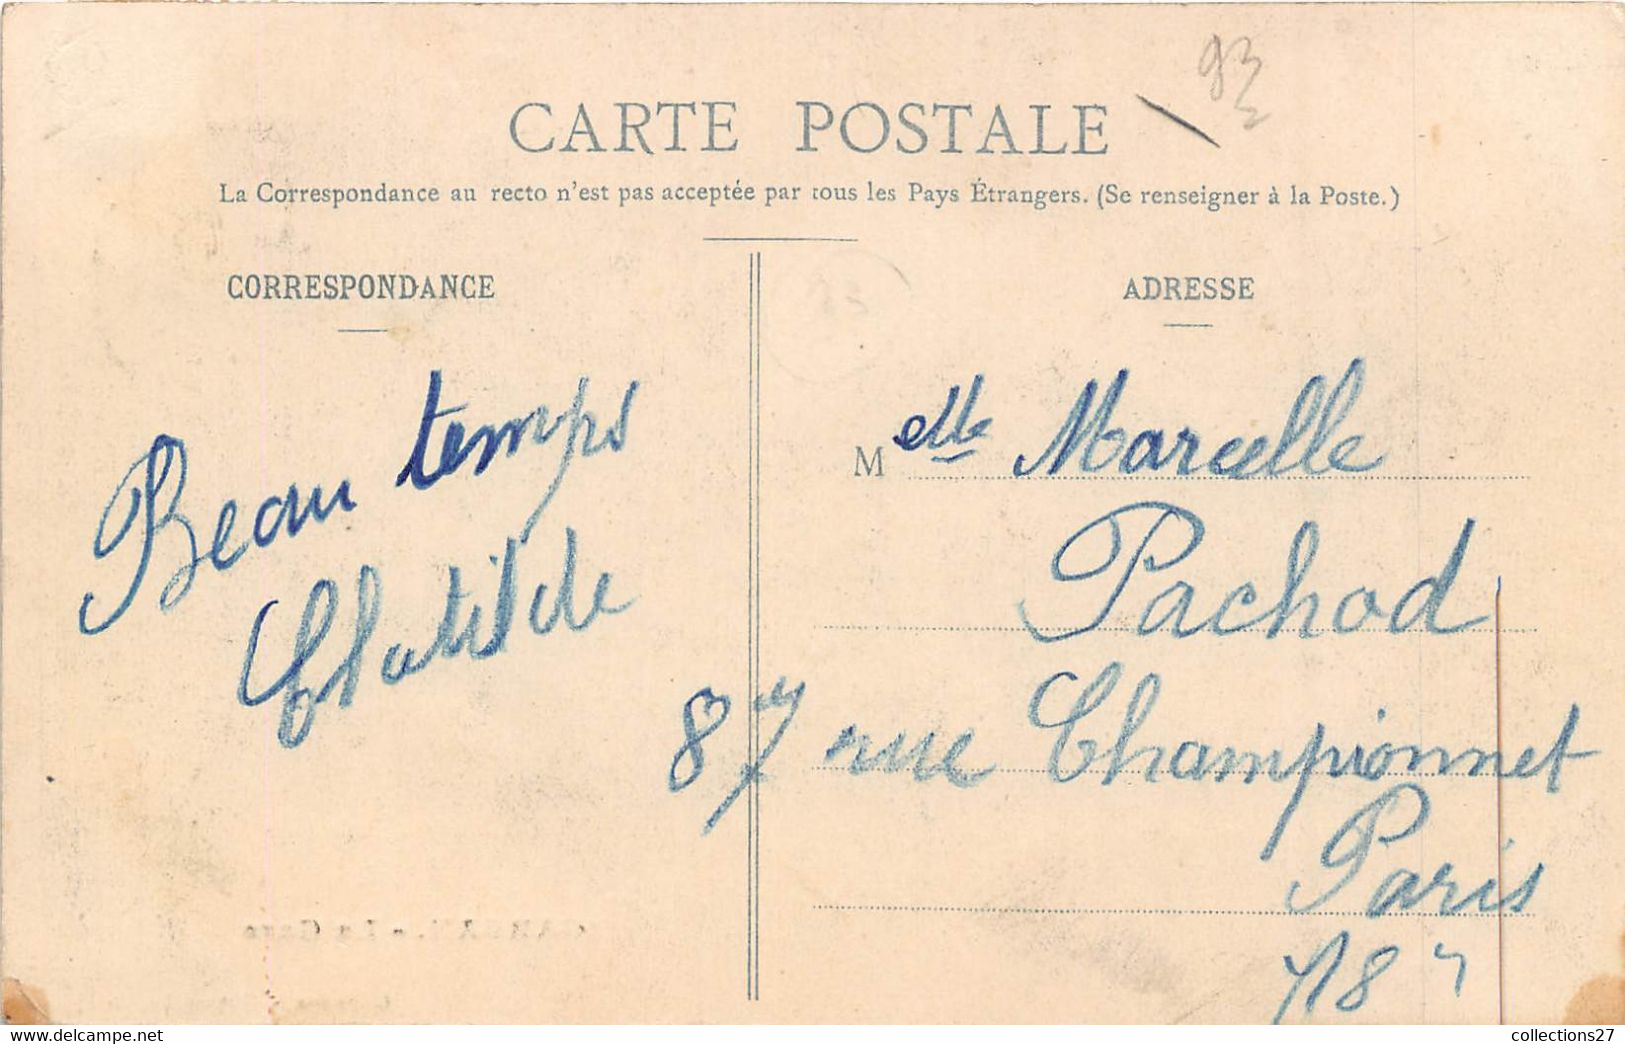 93
CARTE POSTALE
La Correspondance au recto n'est pas acceptée par tous les Pays Étrangers. (Se renseigner à la Poste.)
CORRESPONDANCE
Beau temps
Clotilde
ADRESSE
Melle Marcelle
Pachod
87 rue Championnet
Paris
18
collections27